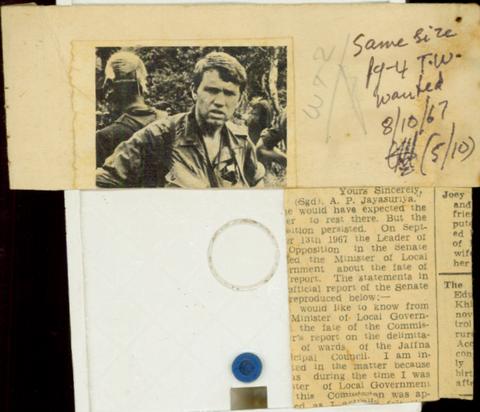 Same size
pg-4 T.W.
wanted
8/10/67
(5/10)
Yours Sincerely,
(Sgd). A. P. Jayasuriya.
he would have expected the
er to rest there. But the
ition persisted. On Sept-
r 13th 1967 the Leader of
Opposition in the Senate
ed the Minister of Local
rnment about the fate of
report. The statements in
official report of the Senate
reproduced below:—
would like to know from
Minister of Local Govern-
the fate of the Commis-
r's report on the delimita-
of wards of the Jaffna
icipal Council. I am in-
ted in the matter because
as during the time I was
ster of Local Government
this Commission was ap-
Joey
and
frie
pute
ed
of
wife
her
The
Edu
Khi
nov
trol
rura
Acc
con
ly
birt
afte